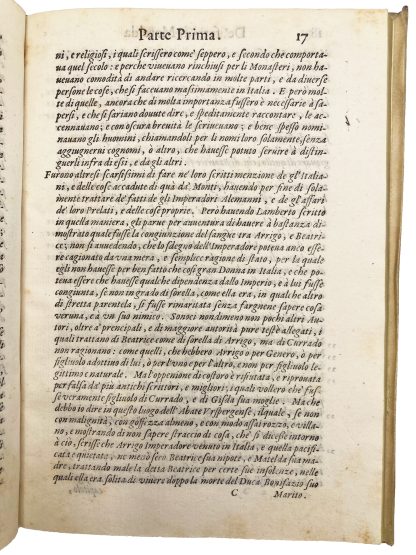 Parte Prima. 17
ni, e religiosi, i quali scrissero com'e seppero, e secondo che comporta-
ua quel secolo: e perche viueuano rinchiusi per li Monasteri, non ha-
ueuano comodità di andare ricercando in molte parti, e da diuerse
persone le cose, che si faceuano massimamente in Italia. E però mol-
te di quelle, ancora che di molta importanza fussero è necessarie à sa-
persi, e che si sariano douute dire, e speditamente raccontare, le ac-
cennauano; e con oscura breuità le scriueuano; e bene spesso nomi-
nauano gli huomini, chiamandoli per li nomi loro solamente, senza
aggiugnerui cognomi, ò altro, che hauesse potuto seruire à distin-
guerli infra di essi, e da gli altri.
Furono altresi scarsissimi di fare ne' loro scritti menzione de gl'Italia-
ni, e delle cose accadute di quà da' Monti, hauendo per fine di sola-
mente trattare de' fatti de gli Imperadori Alemanni, e de gl'affari
de' loro Prelati, e delle cose proprie. Però hauendo Lamberto scritto
in quella maniera, gli parue per auuentura di hauere à bastanza di-
mostrato quale fusse la congiunzione del sangue tra Arrigo, e Beatri-
ce; non si auuedendo, che lo sdegno dell'Imperadore poteua anco esse-
re cagionato da vna mera, e semplice ragione di stato, per la quale
egli non hauesse per ben fatto che così gran Donna in Italia, e che po-
teua essere che hauesse qualche dipendenza dallo Imperio, e à lui fusse
congiunta, se non in grado di sorella, come ella era, in qualche altro
di stretta parentela, si fusse rimaritata senza fargnene sapere cosa
veruna, ed à vn suo nimico. Sonoci nondimeno non pochi altri Au-
tori, oltre a' principali, e di maggiore autorità pure testè allegati, i
quali trattano di Beatrice come di sorella di Arrigo, mà di Currado
non ragionano: come quelli, che hebbero Arrigo ò per Genero, ò per
figliuolo adottiuo di lui, ò per l'vno e per l'altro, e non per figliuolo le-
gittimo e naturale. Mà l'oppenione di costoro è rifiutata, e riprouata
per falsa da' più antichi scrittori, e migliori; i quali vollero che' fus-
se veramente figliuolo di Currado, e di Gisla sua moglie. Ma che
debbo io dire in questo luogo dell'Abate Vrspergense, ilquale, se non
con malignità, con gofezza almeno, e con modo assai rozzo, e villa-
no, e mostrando di non sapere straccio di cosa, che' si dicesse intorno
à ciò, scrisse che Arrigo Imperadore venuto in Italia, e quella pacifi-
cata e quietata, ne menò seco Beatrice sua nipote, e Matelda sua ma-
dre, trattando male la detta Beatrice per certe sue insolenze, nelle
quali ella era solita di viuere doppo la morte del Duca Bonifazio suo
C Marito.